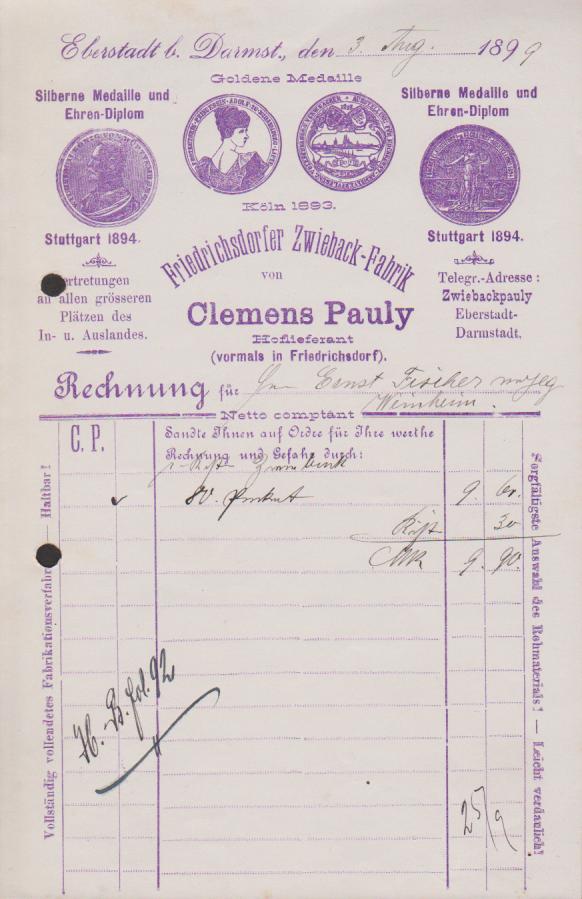 Eberstadt b. Darmst., den 3. Aug. 1899
Goldene Medaille
Silberne Medaille und
Ehren-Diplom
Stuttgart 1894.
Köln 1893.
Silberne Medaille und
Ehren-Diplom
Stuttgart 1894.
Friedrichsdorfer Zwieback-Fabrik
von
Clemens Pauly
Hoflieferant
(vormals in Friedrichsdorf).
ertretungen
an allen grösseren
Plätzen des
In- u. Auslandes.
Telegr.-Adresse:
Zwiebackpauly
Eberstadt-
Darmstadt.
Rechnung für Ernst Fischer
Weinheim.
Netto comptant
C. P.
Sandte Ihnen auf Ordre für Ihre werthe
Rechnung und Gefahr durch:
80. 9. 60.
Kiste 30
Mk 9. 90.
H. B. fol. 92
25/9
Vollständig vollendetes Fabrikationsverfahre — Haltbar!
Sorgfältigste Auswahl des Rohmaterials! — Leicht verdaulich!